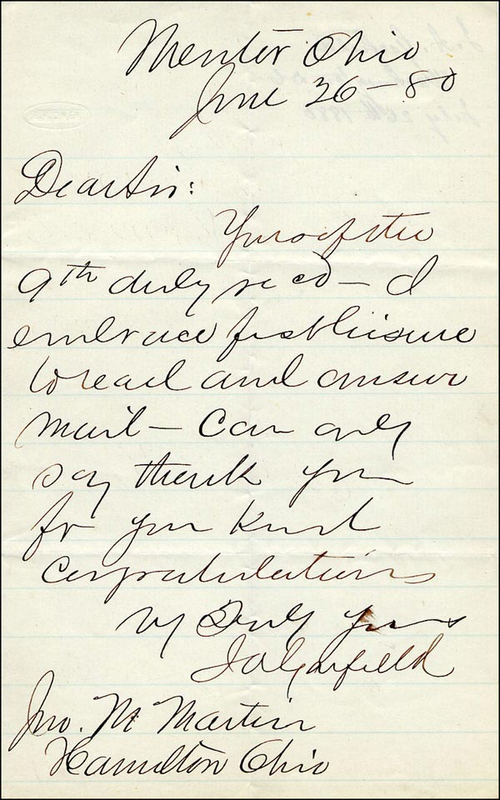 Mentor Ohio
June 26-80
Dear Sir:
Yours of the
9th duly recd - I
embrace first leisure
to read and answer
mail - Can only
say thank you
for your kind
congratulations
Very Truly yours
JAGarfield
Jno. M Martin
Hamilton Ohio